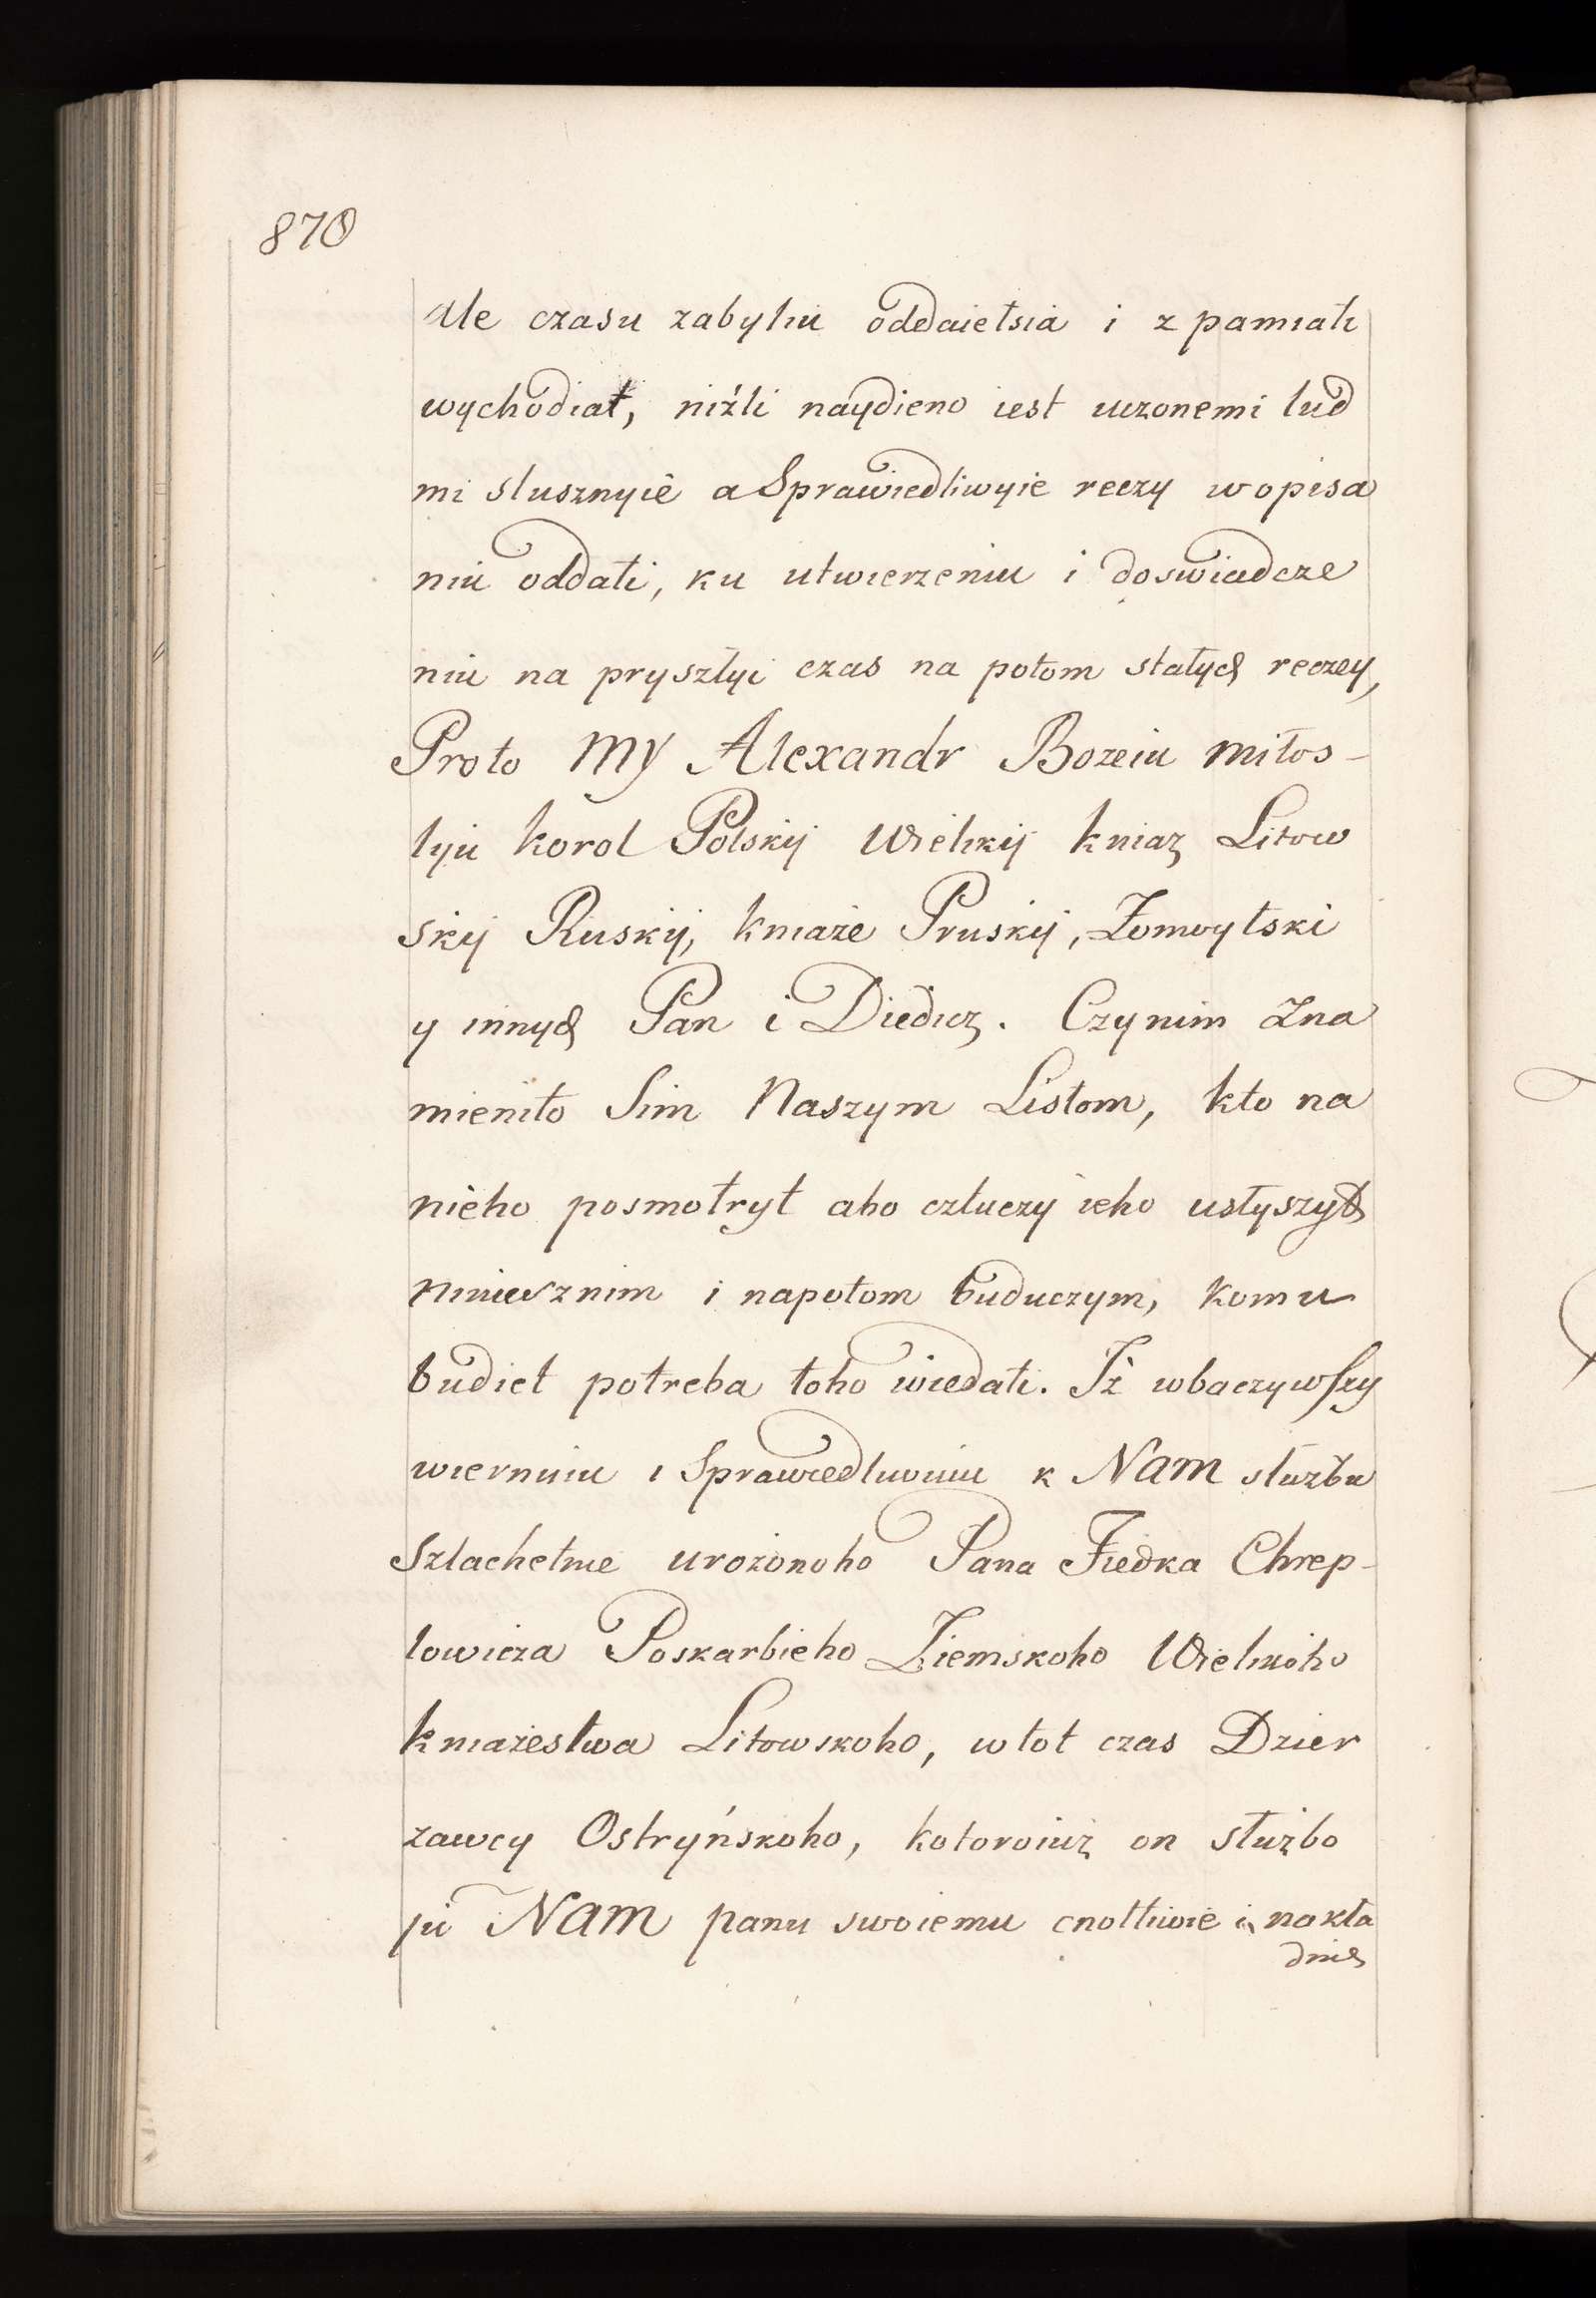 870
Ale czasu zabytiu oddaietsia i z pamiati
wychodiat, niżli naydieno iest uczonemi lud
mi slusznyie a Sprawiedliwyie reczy w opisa
niu oddati, ku utwierzeniu i doswiadcze
niu na pryszlyi czas na potom stałych reczey,
Proto My Alexandr Bozeiu miłos-
tyiu korol Polskij Wielikij kniaz Litow
skij Ruskij, kniaże Pruskij, Żomoytski
y innych Pan i Diedicz. Czynim Zna
menito Sim Naszym Listom, kto na
nieho posmotryt abo cztuczy ieho usłyszyt
ninieisznim i napotom buduczym, komu
budiet potreba toho wiedati. Iż wbaczywszy
wiernuiu i Sprawiedliwuiu k Nam służbu
Szlachetnie urożonoho Pana Fiedka Chrep-
towicza Poskarbieho Ziemskoho Wielikoho
kniażestwa Litowskoho, w tot czas Dzier
zawcy Ostryńskoho, kotoroiuż on służbo
iu Nam panu swoiemu cnotliwie i nakła
dnie